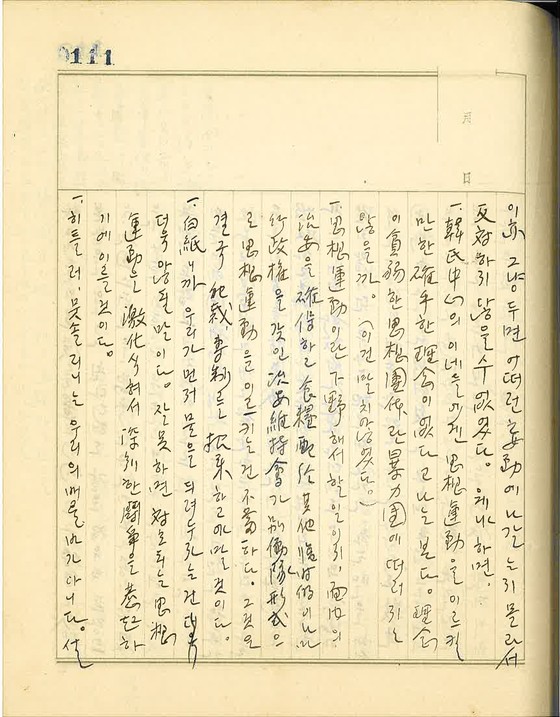 0111
月
日
이亦 그냥 두면 어떠런 妄動에 나갈는지 몰라서
反対하지 않을 수 없었다。 웨냐하면
一、韓氏中心의 이네들에겐 思想運動을 이르킬
만한 確乎한 理念이 없다고 나는 본다。理念
이 貧弱한 思想團体란 暴力団에 떠러지
않을까。(이건 말치않었다。)
一、思想運動이란 下野해서 할 일이지, 面内의
治安을 確保하고 食糧配給 其他 臨時的이나마
行政権을 갖인 治安維持會가 別働隊形式으
로 思想運動을 이르키는건 不當하다。 그것은
결국 独裁専制를 招来하고야 말 것이다。
一、白紙니까 우리가 먼저 물을 듸려두자는건
더욱 않될 말이다。 잘못하면 対立되는 思想
運動는 激化식혀서 深刻한 鬪爭을 惹起하
기에 이를 것이다。
一、히틀러, 뭇솔리니는 우리의 배울배가 아니다。 설